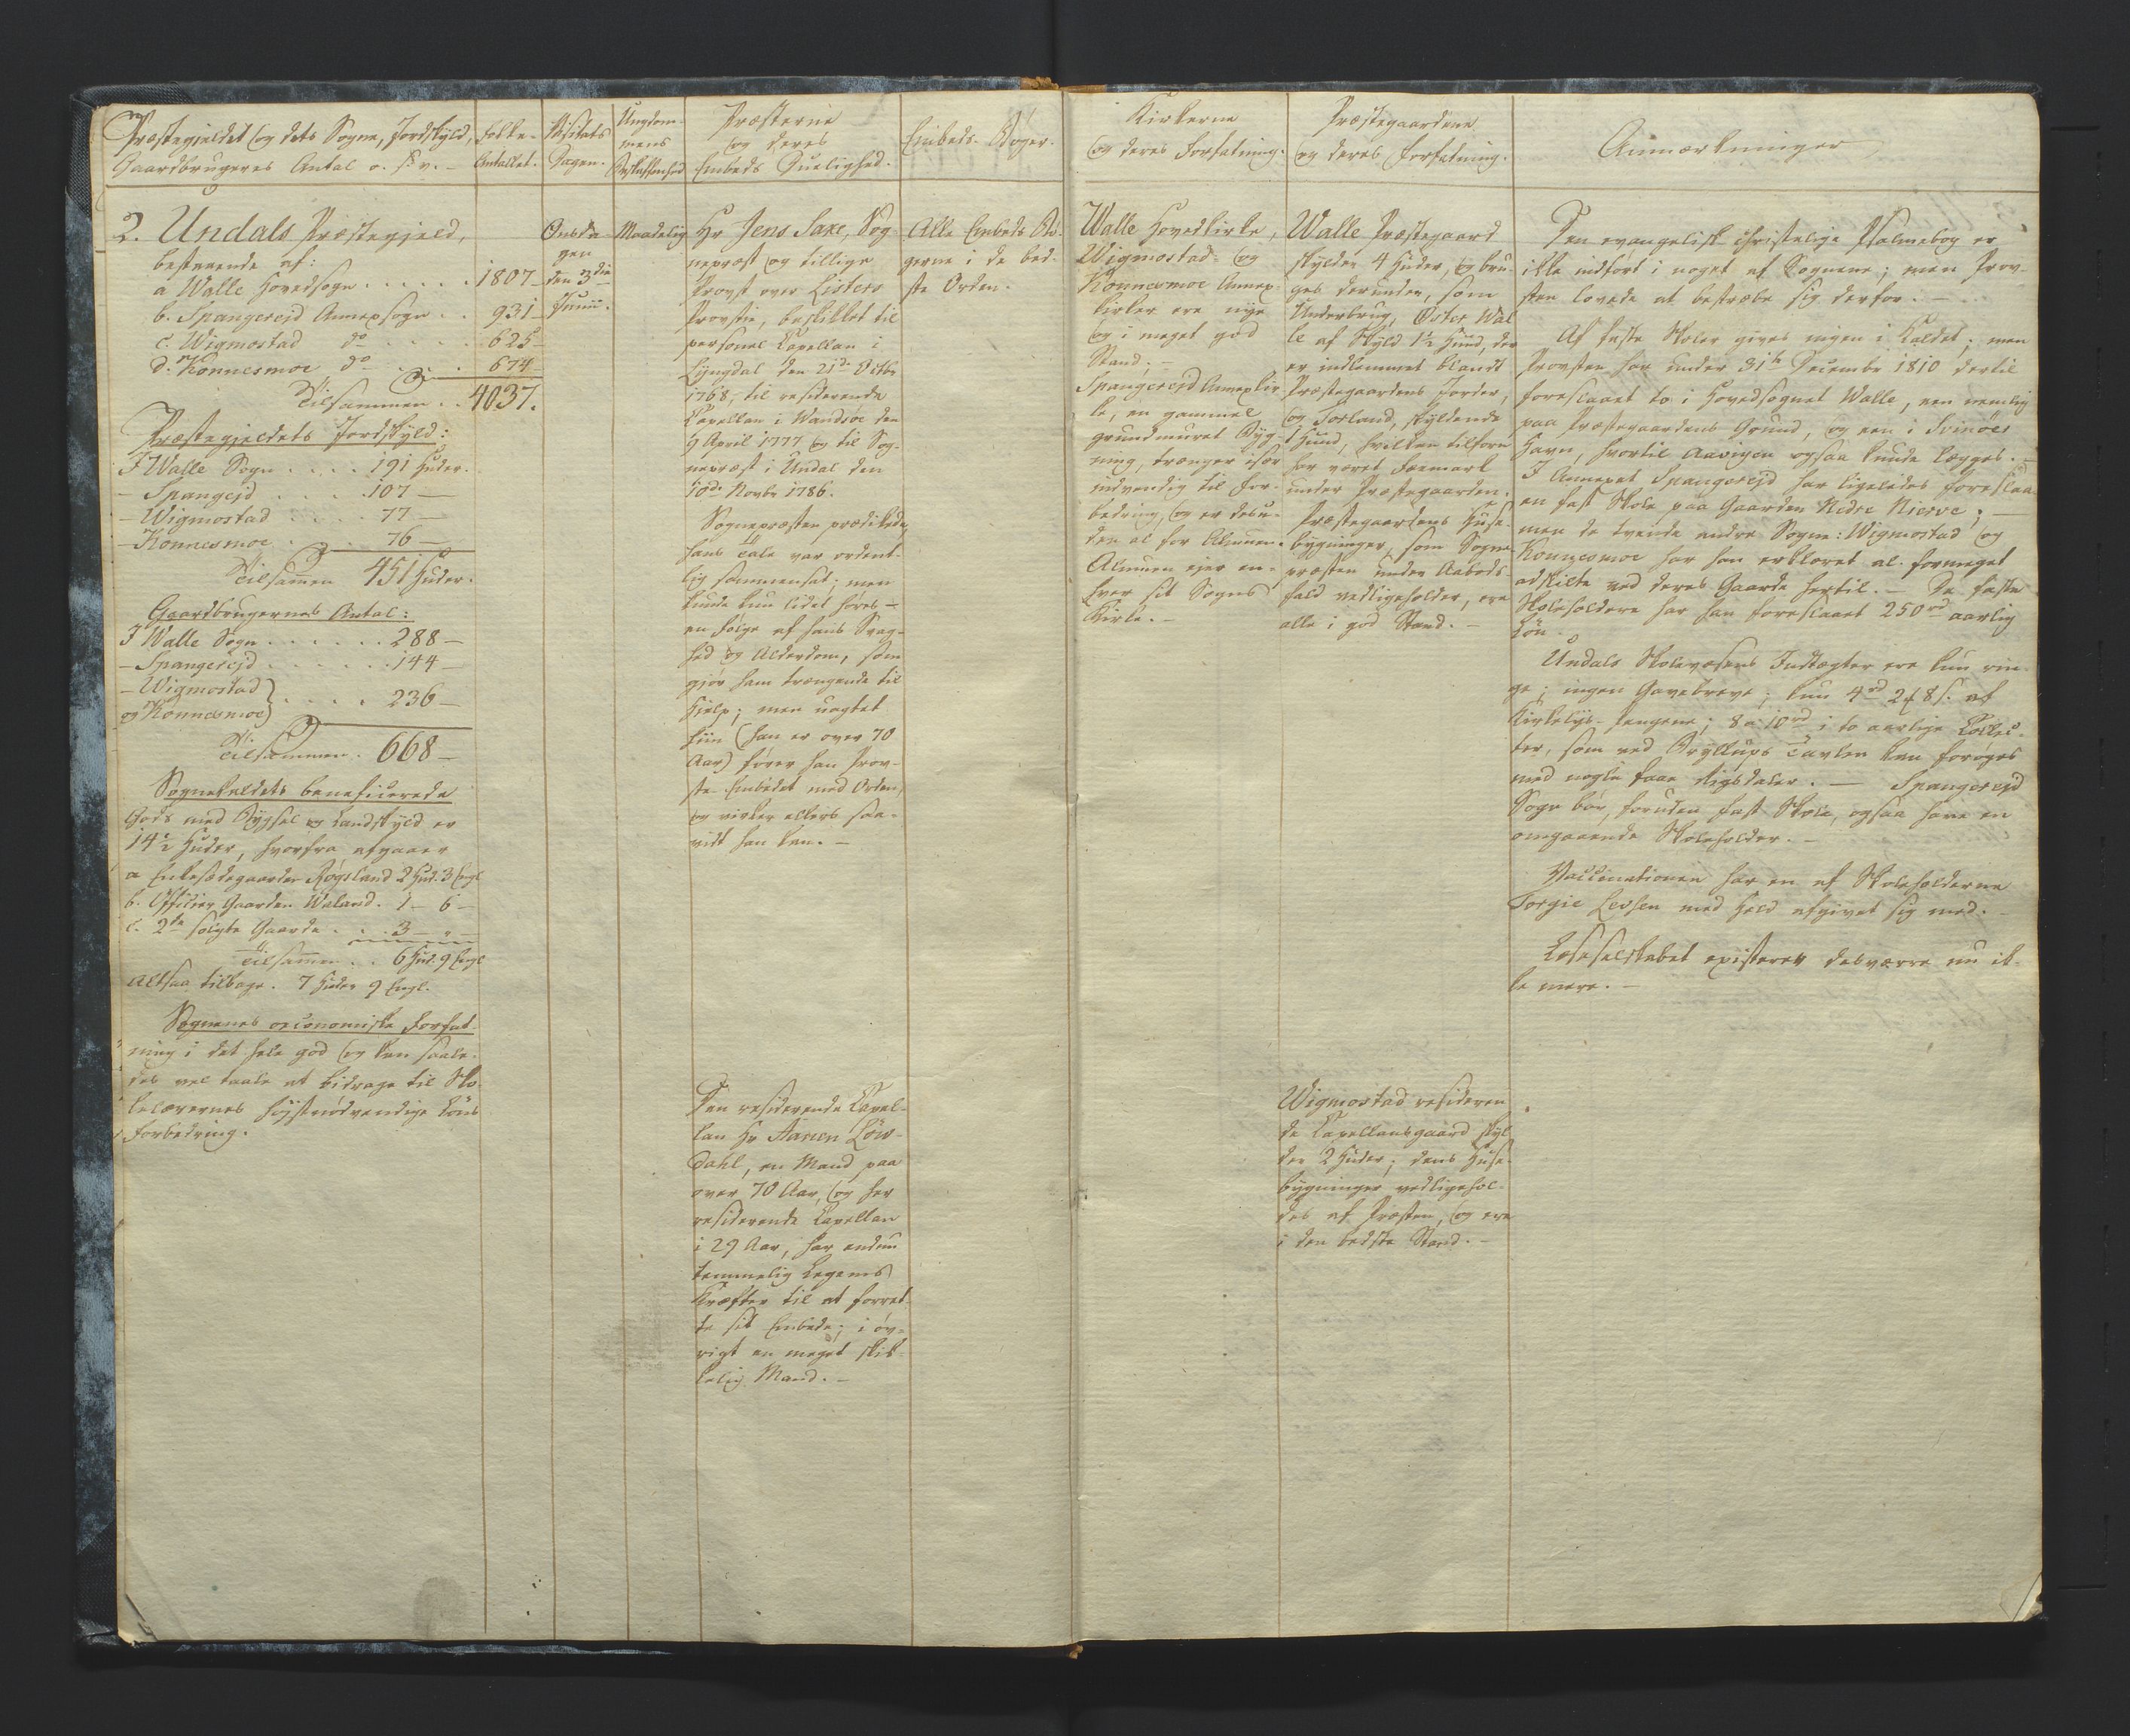 Præstegjeldet og dets Sogne, Jordskyld,
Gaardbrugeres Antal o. s. v. –
Folke-
Antallet.
Visitats
Dagen.
Ungdom-
mens
Beskaffenhed
Præsterne
og deres
Embeds Duelighed.
Embeds-Bøger.
Kirkerne
og deres Forfatning.
Præstegaardene
og deres Forfatning.
Anmærkninger
2. Undals Præstegjeld,
bestaaende af:
a Walle Hovedsogn . . . . . 1807 –
b. Spangereid Annexsogn . . 931 –
c. Wigmostad do . . . . . 625 –
d. Konnesmoe do . . . . 674 –
Tilsammen . . 4037.
Præstegjeldets Jordskyld:
I Walle Sogn . . . . 191 Huder.
– Spangejd . . . . 107 –
– Wigmostad . . . . 77 –
– Konnesmoe . . . 76 –
Tilsamen 451 Huder.
Gaardbrugernes Antal:
I Walle Sogn . . . . . . 288 –
– Spangereid . . . . . . 144 –
– Wigmostad
og Konnesmoe } . . . . 236 –
Tilsammen . 668 –
Sognekaldets beneficerede
Gods med Bygsel og Landskyld er
14½ Huder, hvorfra afgaaer
a Enkesædegaarden Røgsland 2 Hud. 3 Engl
b. Officier Gaarden Waland . 1 – 6 –
c. 2de solgte Gaarde . . . 3 – " –
Tilsamen . . 6 Hud. 9 Engl
Altsaa tilbage . 7 Huder 9 Engl.
Sognenes oeconomiske Forfat-
ning i det hele god og kan saale-
des vel taale at bidrage til Sko-
lelærernes højstnødvendige Løns
Forbedring.
Onsda-
gen
den 3die
Junii.
Maadelig
Hr Jens Saxe, Sog-
nepræst og tillige
Provst over Listers
Provstie, beskikket til
personel Capellan i
Lyngdal den 21de Octbr
1768, til residerende
Capellan i Wandsøe den
9 April 1777 og til Sog-
nepræst i Undal den
10de Novbr 1786.
Sognepræsten prædikede,
hans Tale var ordent-
lig sammensat; men
kunde kun lidet høres –
en Følge af hans Svag-
hed og Alderdom, som
gjør ham trængende til
Hielp; men uagtet
hiin (han er over 70
Aar) fører han Prov-
ste-Embedet med Orden,
og virker ellers saa-
vidt han kan. –
Den residerende Capel-
lan Hr Aanen Löw-
dahl, en Mand paa
over 70 Aar, og her
residerende Capellan
i 29 Aar, har endnu
temmelig Legems
Kræfter til at forret-
te sit Embede; i øv-
rigt en meget skik-
kelig Mand. –
Alle Embeds Bø-
gerne i de bed-
ste Orden.
Walle Hovedkirke,
Wigmostad- og
Konnesmoe Annex-
kirker ere nye
og i meget god
Stand; –
Spangereid Annexkir-
ke, en gammel
grundmuret Byg-
ning, trænger især
indvendig til For-
bedring, og er desu-
den al for liden.
Almuen ejer en-
hver sit Sogns
Kirke. –
Walle Præstegaard
skylder 4 Huder, og bru-
ges derunder, som
Underbrug, Øster Wal-
le af Skyld 1½ Huud, der
er indlemmet blandt
Præstegaardens Jorder,
og Torland, skyldende
1 Huud, hvilken tilforn
har været Fæmark
under Præstegaarden.
Præstegaardens Huse-
bygninger, som Sogne-
præsten under Aabods-
fald vedligeholder, ere
alle i god Stand. –
Wigmostad resideren-
de Capellansgaard skyl-
der 2 Huder; dens Huse-
bygninger vedligehol-
des af Præsten, og ere
i den bedste Stand. –
Den evangelisk christelige Psalmebog er
ikke indført i noget af Sognene; men Prov-
sten lovede at bestræbe sig derfor. –
Af faste Skoler gives ingen i Kaldet; men
Provsten har under 31te Decembr 1810 dertil
foreslaaet to i Hovedsognet Walle, een nemlig
paa Præstegaardens Grund, og een i Svinöer
Havn, hvortil Aavigen ogsaa kunde lægges. –
I Annexet Spangereid har ligeledes foreslaa-
en fast Skole paa Gaarden Nedre Njerve; –
men de tvende andre Sogne: Wigmostad og
Konnesmoe har han erklæret al formeget
adskilte ved deres Gaarde hertil. – De faste
Skoleholdere har han foreslaaet 250 rd aarlig
Løn.
Undals Skolevæsens Indtægter ere kun rin-
ge; ingen Gavebreve; kun 4 rd 2 ƒ 8 s. af
Kirkelys-Pengene; 8 a 10 rd i to aarlige Collec-
ter, som ved Bryllups Tavlen kan forøges
med nogle faae Rigsdaler. – Spangereid
Sogn bør, foruden fast Skole, ogsaa have en
omgaaende Skoleholder. –
Vaccinationen har en af Skoleholderne
Torgie Levsen med Held afgivet sig med. –
Læseselskabet existerer desværre nu ik-
ke mere. –